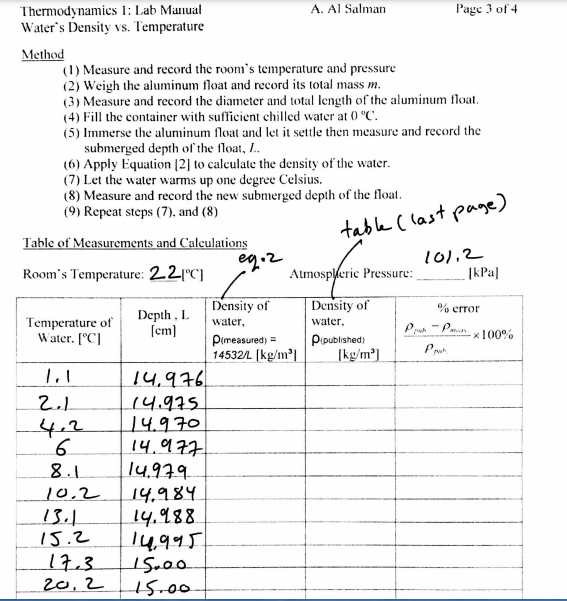 Thermodynamics 1: Lab Manual A. Al Salman Page 3 of 4
Water's Density vs. Temperature
Method
(1) Measure and record the room's temperature and pressure
(2) Weigh the aluminum float and record its total mass m.
(3) Measure and record the diameter and total length of the aluminum float.
(4) Fill the container with sufficient chilled water at 0 °C.
(5) Immerse the aluminum float and let it settle then measure and record the
submerged depth of the float, L.
(6) Apply Equation [2] to calculate the density of the water.
(7) Let the water warms up one degree Celsius.
(8) Measure and record the new submerged depth of the float.
(9) Repeat steps (7), and (8)
table (last page)
Table of Measurements and Calculations
eq.2
Room's Temperature: 22 [°C] Atmospheric Pressure: 101.2 [kPa]
Temperature of Water. [°C]
Depth , L [cm]
Density of water, ρ(measured) = 14532/L [kg/m³]
Density of water, ρ(published) [kg/m³]
% error
ρpub − ρmeas / ρpub ×100%
1.1 14.976
2.1 14.975
4.2 14.970
6 14.977
8.1 14.979
10.2 14.984
13.1 14.988
15.2 14.995
17.3 15.00
20.2 15.00